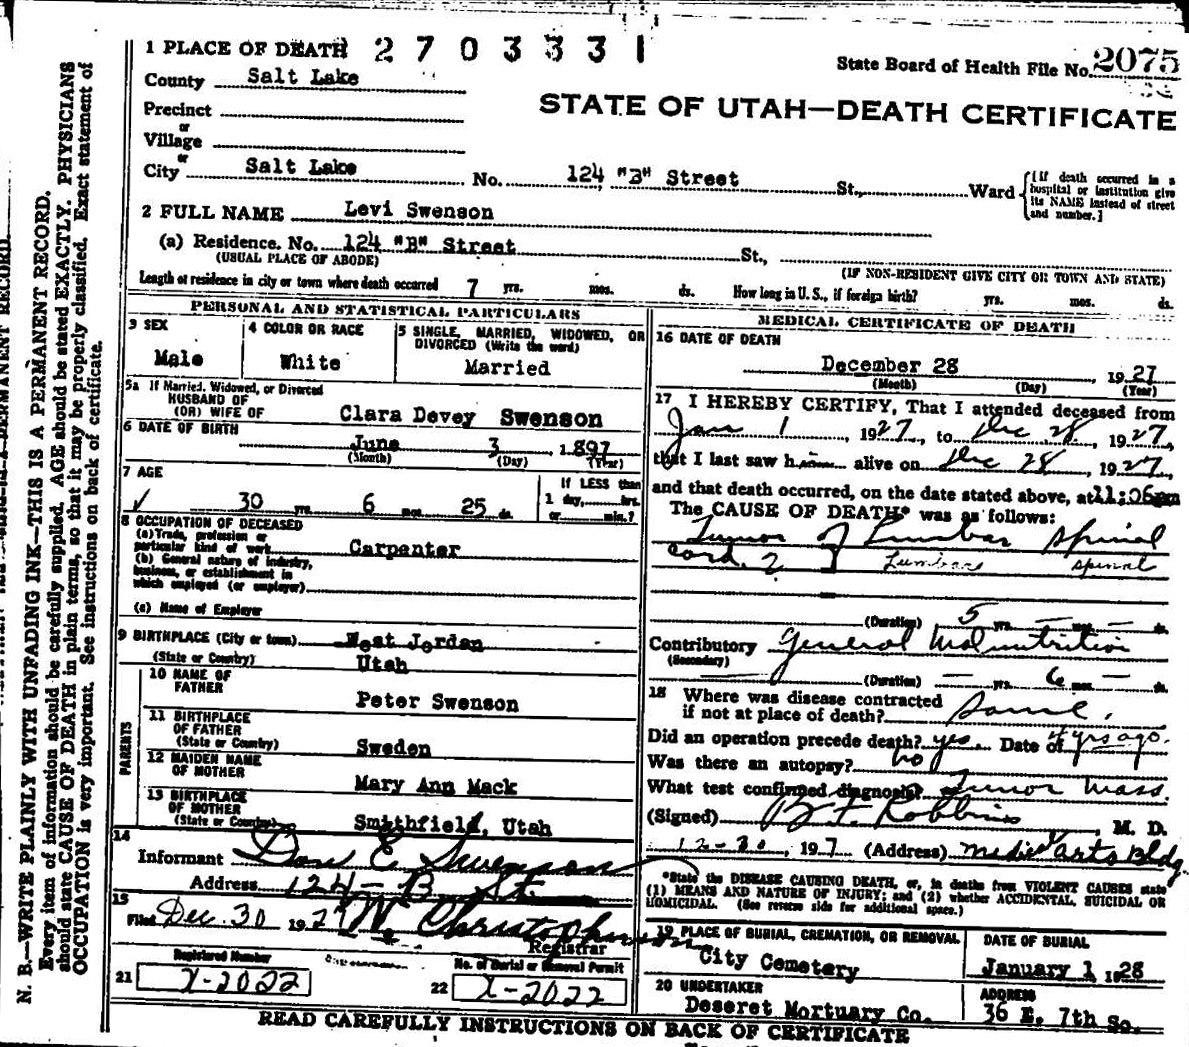 1 PLACE OF DEATH 2703331
State Board of Health File No. 2075
County Salt Lake
STATE OF UTAH—DEATH CERTIFICATE
Precinct
or
Village
or
City Salt Lake No. 124 "B" Street St., Ward
{(If death occurred in a hospital or institution give its NAME instead of street and number.]
2 FULL NAME Levi Swenson
(a) Residence. No. 124 "B" Street St.,
(USUAL PLACE OF ABODE) (IF NON-RESIDENT GIVE CITY OR TOWN AND STATE)
Length of residence in city or town where death occurred 7 yrs. mos. ds. How long in U. S., if foreign birth? yrs. mos. ds.
PERSONAL AND STATISTICAL PARTICULARS
3 SEX
Male
4 COLOR OR RACE
White
5 SINGLE, MARRIED, WIDOWED, OR DIVORCED (Write the word)
Married
5a If Married, Widowed, or Divorced
HUSBAND OF
(OR) WIFE OF Clara Devey Swenson
6 DATE OF BIRTH
June 3, 1897
(Month) (Day) (Year)
7 AGE
30 yrs. 6 mos. 25 ds.
If LESS than
1 day, hrs.
or min.?
8 OCCUPATION OF DECEASED
(a) Trade, profession or
particular kind of work Carpenter
(b) General nature of industry,
business, or establishment in
which employed (or employer)
(c) Name of Employer
9 BIRTHPLACE (City or town) West Jordan
(State or Country) Utah
PARENTS
10 NAME OF
FATHER Peter Swenson
11 BIRTHPLACE
OF FATHER
(State or Country) Sweden
12 MAIDEN NAME
OF MOTHER Mary Ann Mack
13 BIRTHPLACE
OF MOTHER
(State or Country) Smithfield, Utah
14
Informant Dan E Swenson
Address 124 - B St.
15
Filed Dec. 30 1927 Christopherson
Registrar
Registered Number
21 X-2022
No. of Burial or Removal Permit
22 X-2022
MEDICAL CERTIFICATE OF DEATH
16 DATE OF DEATH
December 28, 1927
(Month) (Day) (Year)
17 I HEREBY CERTIFY, That I attended deceased from
Jan 1, 1927, to Dec 28, 1927,
that I last saw him alive on Dec 28, 1927,
and that death occurred, on the date stated above, at 11:06 pm
The CAUSE OF DEATH* was as follows:
Tumor of Lumbar spinal
cord. Lumbar spinal
(Duration) 5 yrs. — mos. — ds.
Contributory General Malnutrition
(Secondary)
(Duration) — yrs. 6 mos. — ds.
18 Where was disease contracted
if not at place of death? Same.
Did an operation precede death? yes. Date of 4 yrs ago.
Was there an autopsy? no
What test confirmed diagnosis? Tumor Mass.
(Signed) B. F. Robbins, M. D.
12-30, 1927 (Address) Medical Arts Bldg.
*State the DISEASE CAUSING DEATH, or, in deaths from VIOLENT CAUSES state
(1) MEANS AND NATURE OF INJURY; and (2) whether ACCIDENTAL, SUICIDAL OR
HOMICIDAL. (See reverse side for additional space.)
19 PLACE OF BURIAL, CREMATION, OR REMOVAL
City Cemetery
DATE OF BURIAL
January 1 1928
20 UNDERTAKER
Deseret Mortuary Co.
ADDRESS
36 E. 7th So.
READ CAREFULLY INSTRUCTIONS ON BACK OF CERTIFICATE
N. B.—WRITE PLAINLY WITH UNFADING INK—THIS IS A PERMANENT RECORD.
Every item of information should be carefully supplied. AGE should be stated EXACTLY. PHYSICIANS
should state CAUSE OF DEATH in plain terms, so that it may be properly classified. Exact statement of
OCCUPATION is very important. See instructions on back of certificate.